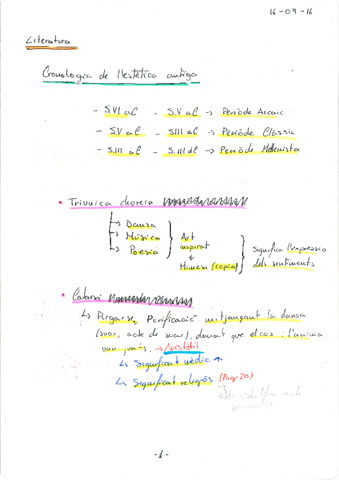 16-09-16
Literatura
Cronologia de l'estètica antiga
- S.VI aC - S.V aC → Període Arcaic
- S.V aC - S.III aC → Període Clàssic
- S.III aC - S.III dC → Període Hel·lenista
* Triunica choreia
↳ Dansa
↳ Música
↳ Poesia
Art
inspirat
+
Mimesi (copia)
Significa l'expressió
dels sentiments
* Catarsi
↳ Purgar-se, Purificació mitjançant la dansa
(suor, acte de suar), donat que el cos i l'ànima
van junts. → Aristòtil
↳ Significat mèdic
↳ Significat religiós (Pàg 20)
-1-